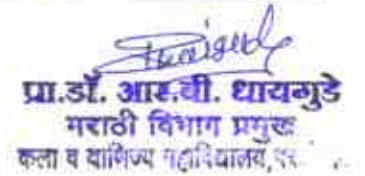 प्रा.डॉ. आर.बी. धायगुडे
मराठी विभाग प्रमुख
कला व वाणिज्य महाविद्यालय,